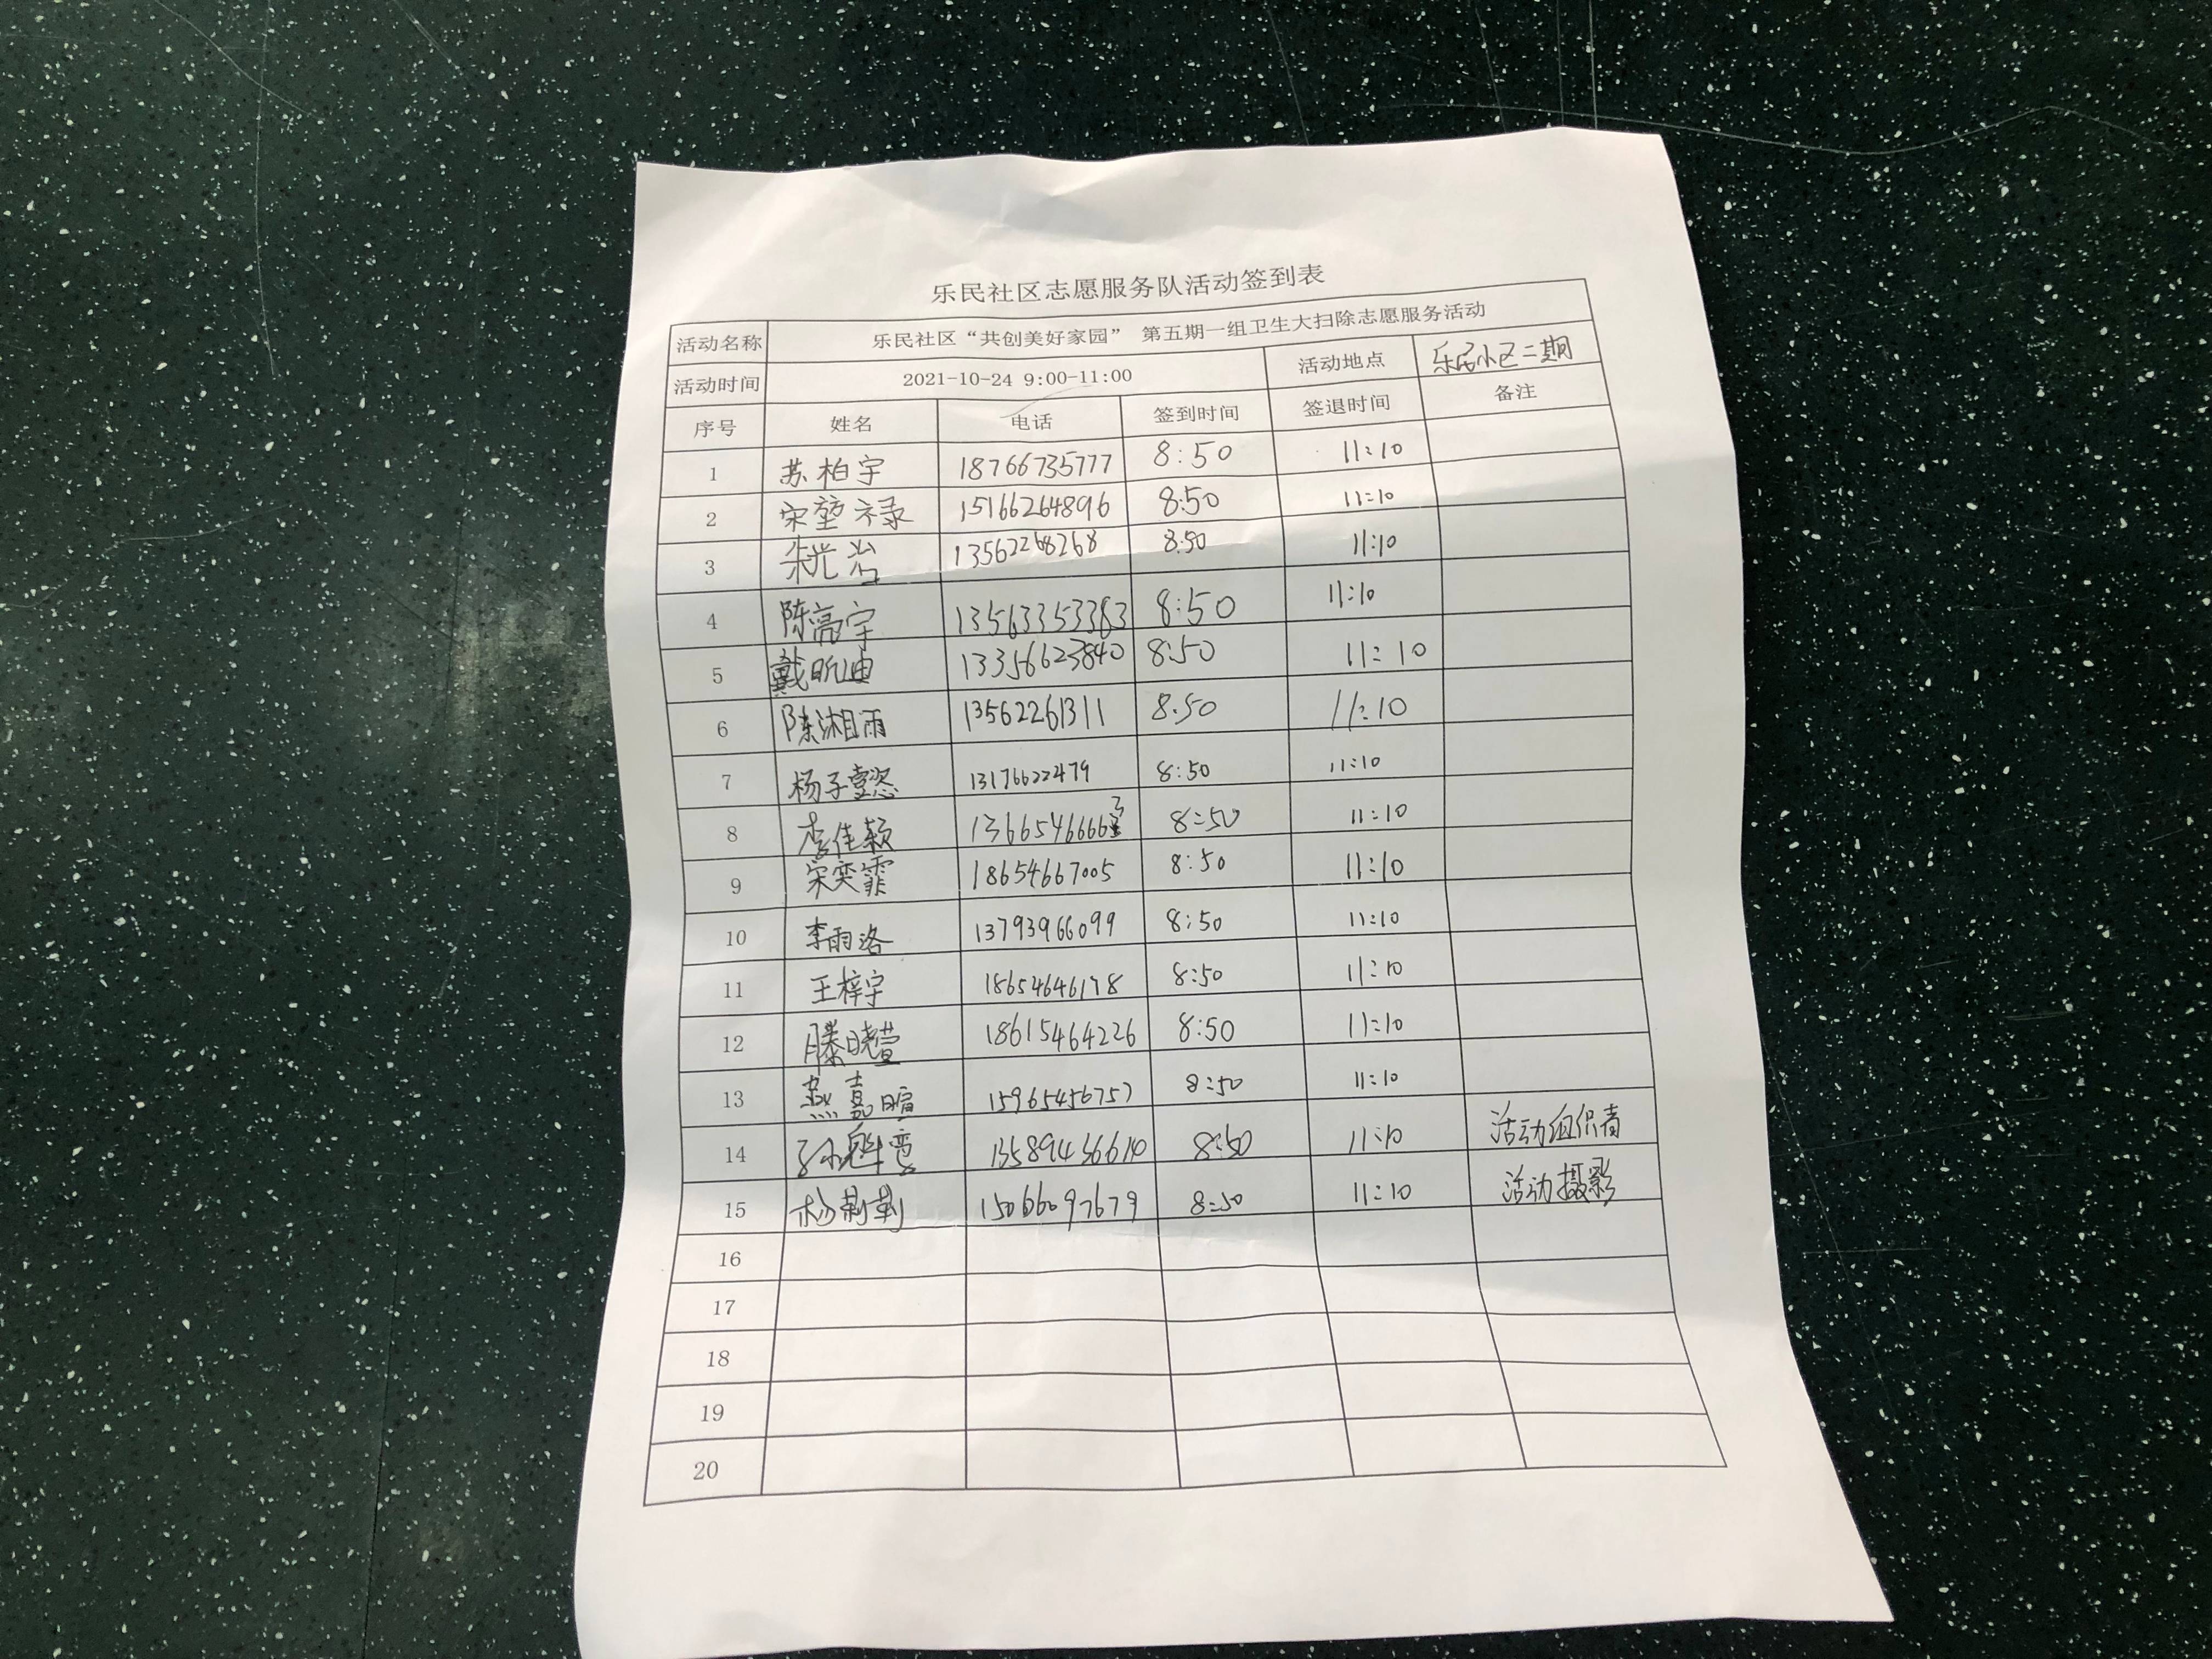 乐民社区志愿服务队活动签到表
活动名称 乐民社区“共创美好家园” 第五期一组卫生大扫除志愿服务活动
活动时间 2021-10-24 9:00-11:00 活动地点 乐民小区二期
序号 姓名 电话 签到时间 签退时间 备注
1 苏柏宇 18766735777 8:50 11:10
2 宋堃禄 15166264896 8:50 11:10
3 朱光岩 13562268268 8:50 11:10
4 陈亮宇 13563353383 8:50 11:10
5 戴 13356623840 8:50 11:10
6 陈湘雨 13562261311 8:50 11:10
7 杨子懿 13176622479 8:50 11:10
8 李佳颖 13665466663 8:50 11:10
9 宋奕霏 18654667005 8:50 11:10
10 李雨洛 13793966099 8:50 11:10
11 王梓宇 18654646178 8:50 11:10
12 滕晓萱 18615464226 8:50 11:10
13 燕嘉暄 15965456757 8:50 11:10
14 8:50 11:10 活动组织者
15 杨莉莉 15066097679 8:50 11:10 活动摄影
16
17
18
19
20